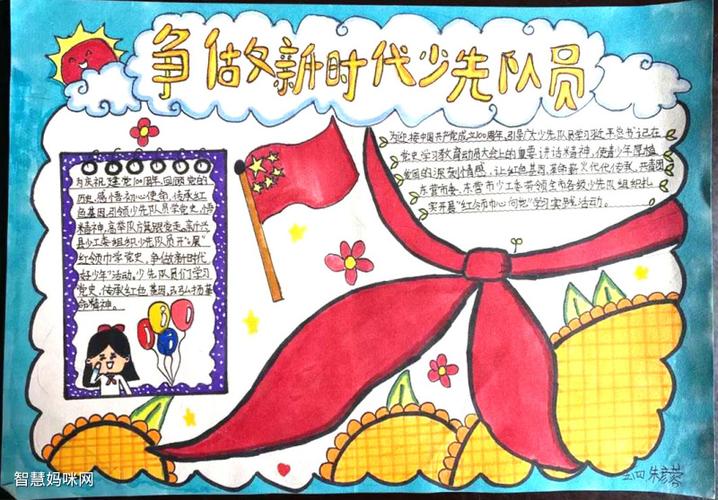 争做新时代少先队员
为迎接中国共产党成立100周年,引导广大少先队员学习近平总书记在
党史学习教育动员大会上的重要讲话精神,使青少年厚植
爱国的深刻情感,让红色基因、革命薪火代代传承,共青团
东营市委、东营市少工委带领全市各级少先队组织扎
实开展"红领巾心向党"学习实践活动。
为庆祝建党100周年,回顾党的
历史,感悟初心使命,传承红
色基因,引领少先队员学党史、悟
精神,高举队旗跟党走。
县少工委组织少先队员开展
"红领巾学党史,争做新时代
好少年"活动。少先队员们学习
党史,传承红色基因,弘扬革
命精神。
三四 朱彦蓉
智慧妈咪网